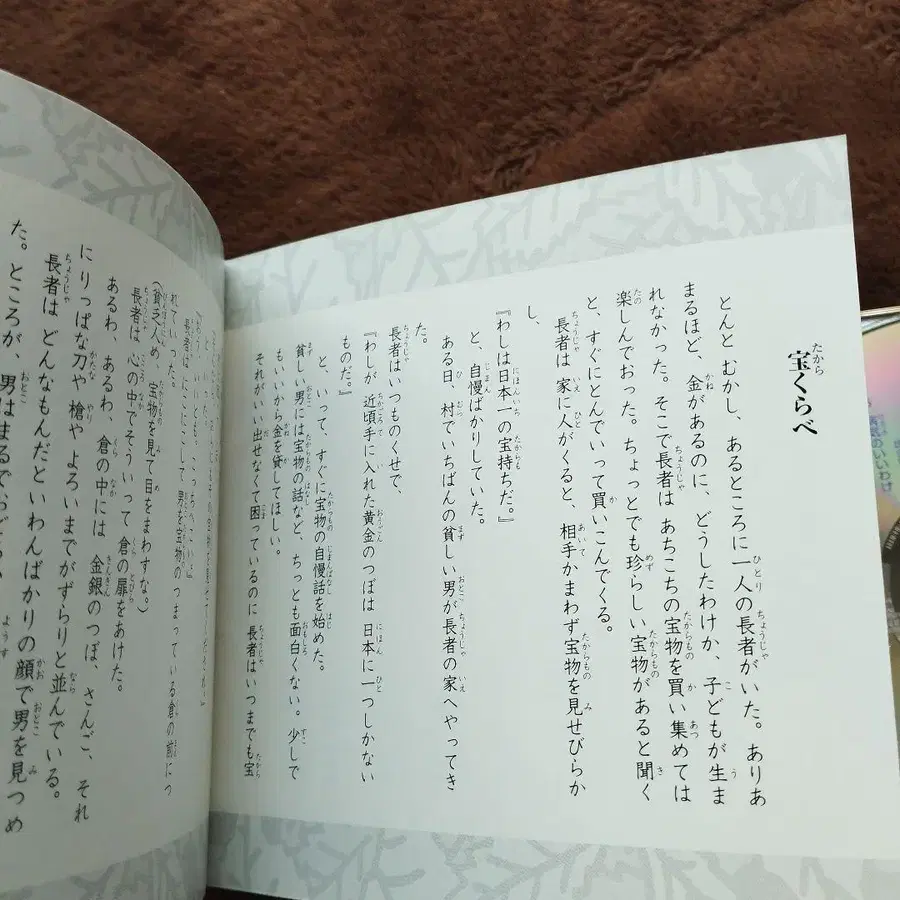 宝くらべ
とんと むかし、あるところに一人の長者がいた。ありあ
まるほど、金があるのに、どうしたわけか、子どもが生ま
れなかった。そこで長者は あちこちの宝物を買い集めては
楽しんでおった。ちょっとでも珍らしい宝物があると聞く
と、すぐにとんでいって買いこんでくる。
長者は 家に人がくると、相手かまわず宝物を見せびらか
し、
『わしは日本一の宝持ちだ。』
と、自慢ばかりしていた。
ある日、村でいちばんの貧しい男が長者の家へやってき
た。
長者はいつものくせで、
『わしが 近頃手に入れた黄金のつぼは 日本に一つしかない
ものだ。』
と、いって、すぐに宝物の自慢話を始めた。
貧しい男には宝物の話など、ちっとも面白くない。少しで
もいいから金を貸してほしい。
それがいい出せなくて困っているのに 長者はいつまでも宝
長者は にこにこして 男を宝物の つまっている倉の前につ
れていった。
(貧乏人め、宝物を見て目をまわすな。)
長者は 心の中でそういって倉の扉をあけた。
あるわ、あるわ、倉の中には 金銀のつぼ、さんご、それ
にりっぱな刀や 槍や よろいまでがずらりと並んでいる。
長者は どんなもんだといわんばかりの顔で男を見つめ
た。ところが、男はまるでおどろ